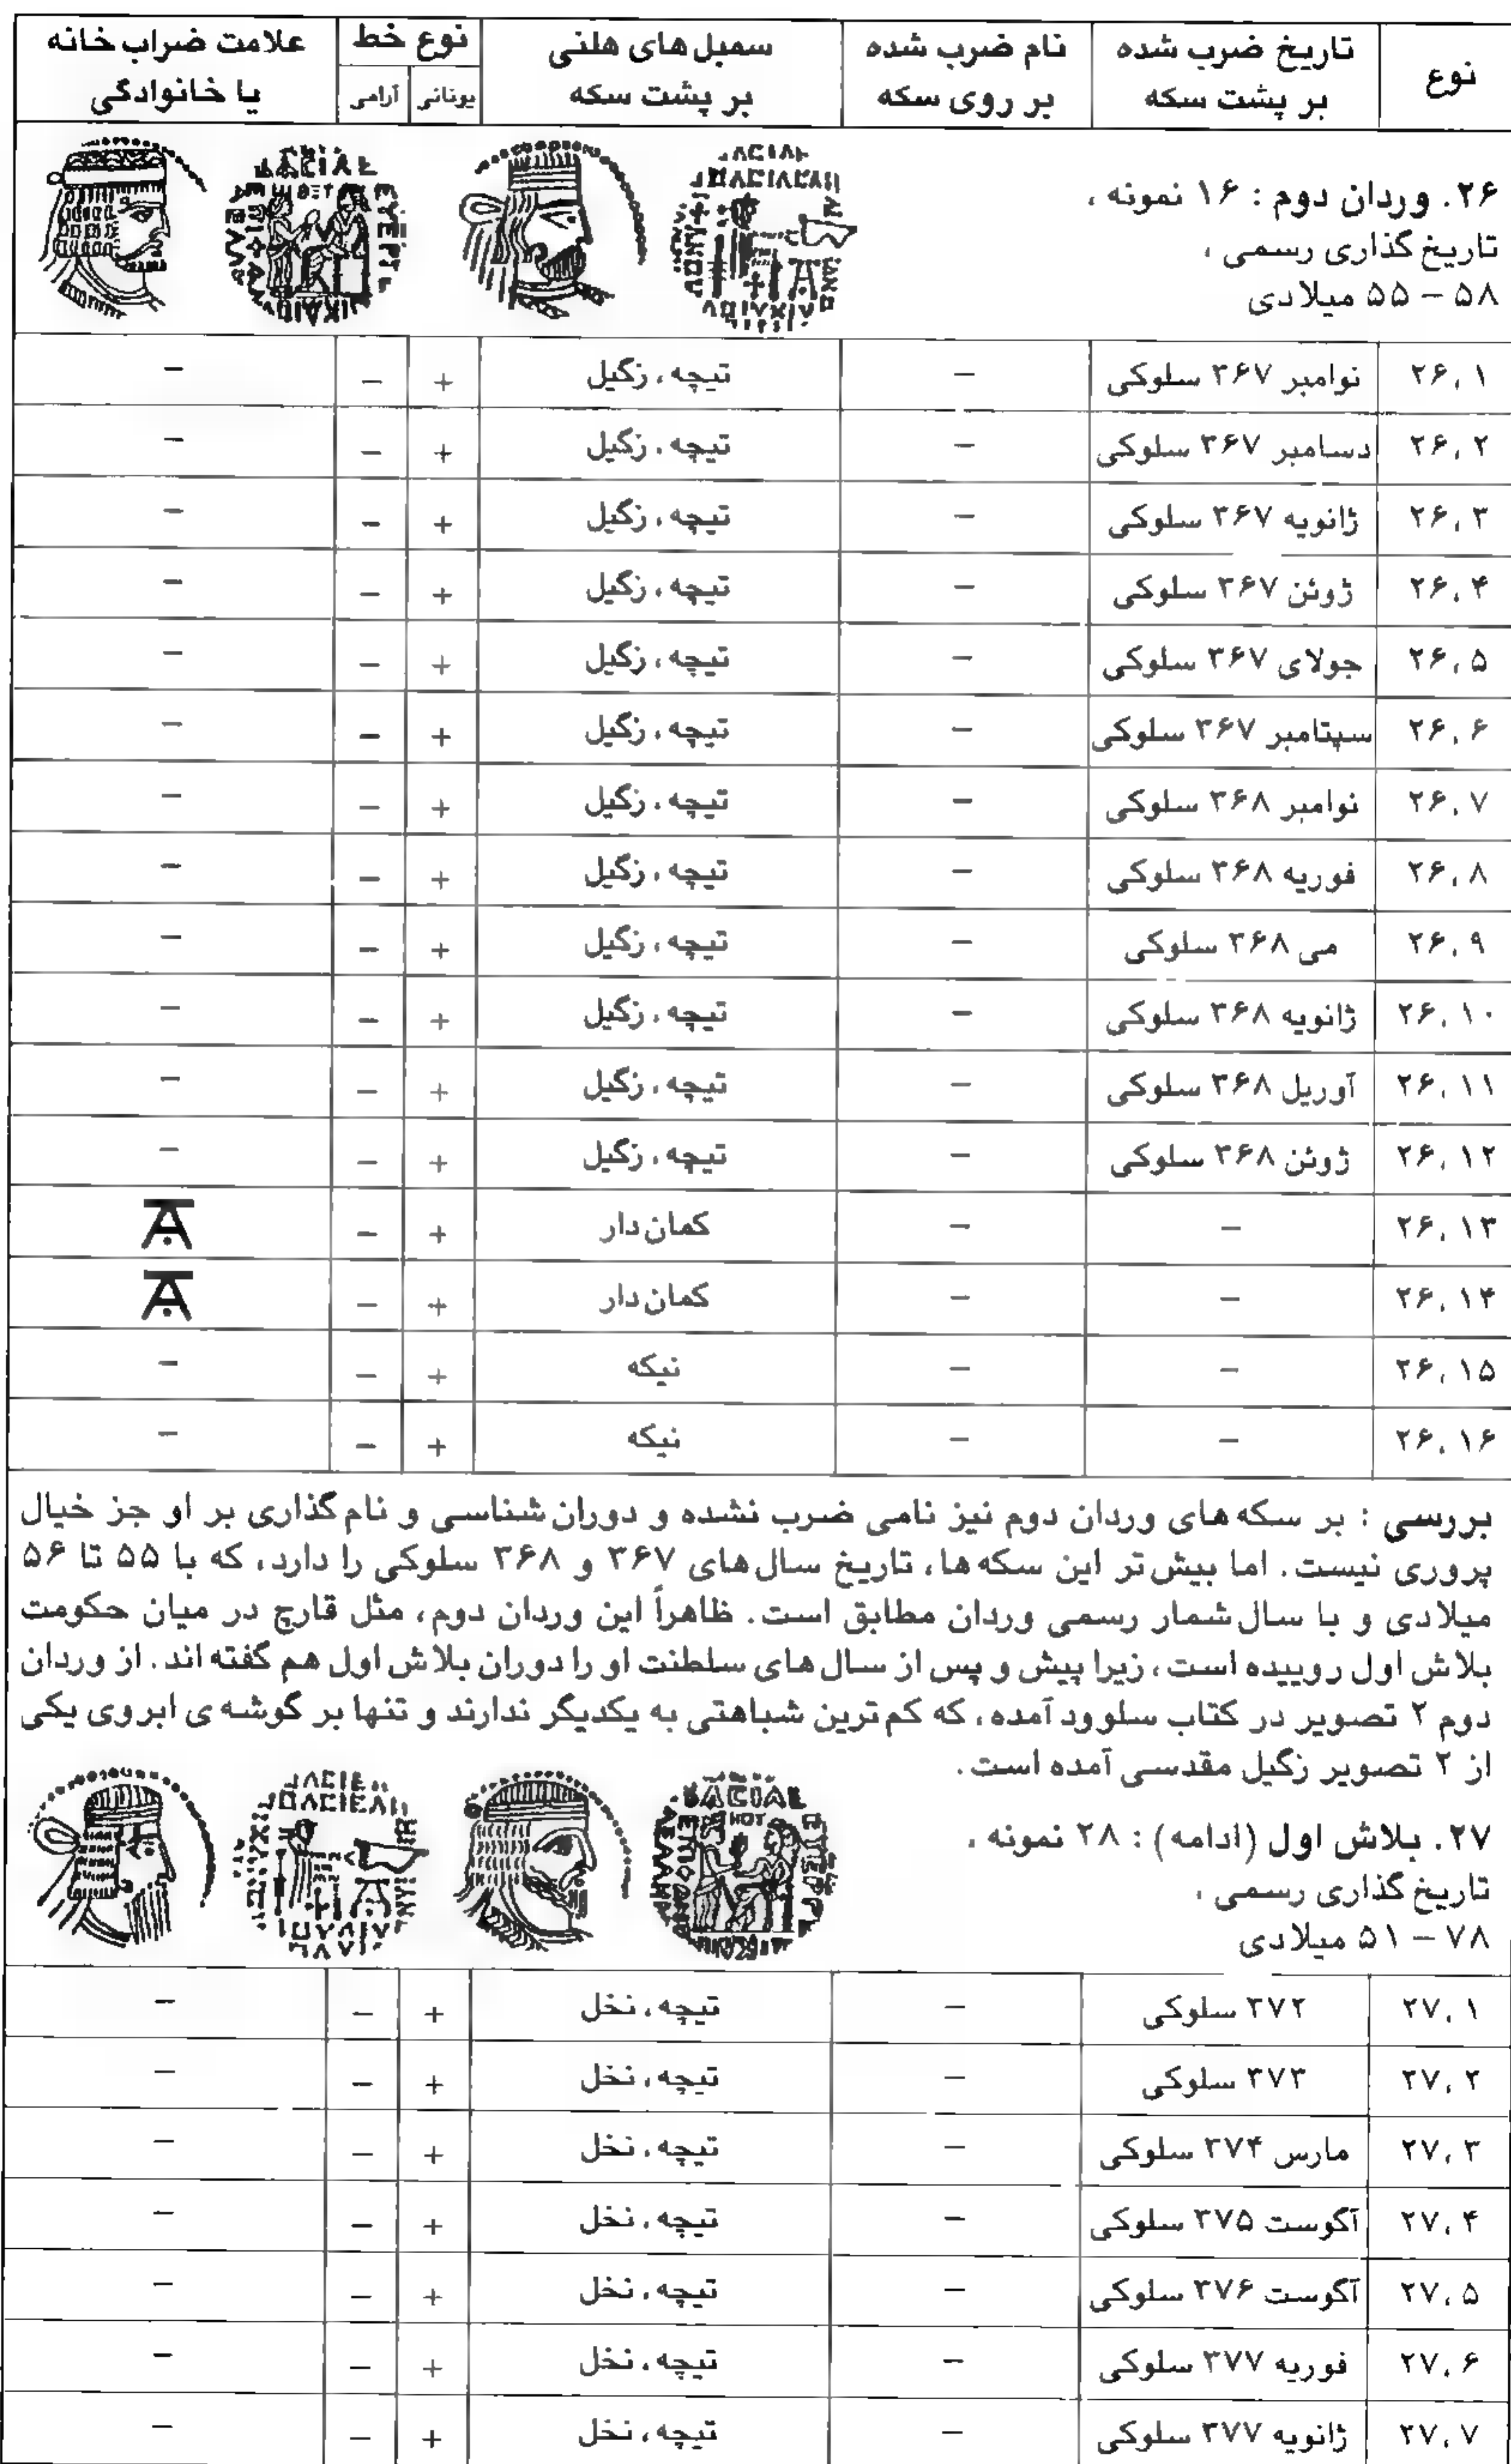 نوع | تاریخ ضرب شده بر پشت سکه | نام ضرب شده بر روی سکه | سمبل های هلنی بر پشت سکه | نوع خط | یونانی | آرامی | علامت ضراب خانه یا خانوادگی
۲۶. وردان دوم : ۱۶ نمونه ،
تاریخ گذاری رسمی ،
۵۸ – ۵۵ میلادی
۲۶،۱ | نوامبر ۳۶۷ سلوکی | – | تیچه، زگیل | + | – | –
۲۶،۲ | دسامبر ۳۶۷ سلوکی | – | تیچه، زگیل | + | – | –
۲۶،۳ | ژانویه ۳۶۷ سلوکی | – | تیچه، زگیل | + | – | –
۲۶،۴ | ژوئن ۳۶۷ سلوکی | – | تیچه، زگیل | + | – | –
۲۶،۵ | جولای ۳۶۷ سلوکی | – | تیچه، زگیل | + | – | –
۲۶،۶ | سپتامبر ۳۶۷ سلوکی | – | تیچه، زگیل | + | – | –
۲۶،۷ | نوامبر ۳۶۸ سلوکی | – | تیچه، زگیل | + | – | –
۲۶،۸ | فوریه ۳۶۸ سلوکی | – | تیچه، زگیل | + | – | –
۲۶،۹ | می ۳۶۸ سلوکی | – | تیچه، زگیل | + | – | –
۲۶،۱۰ | ژانویه ۳۶۸ سلوکی | – | تیچه، زگیل | + | – | –
۲۶،۱۱ | آوریل ۳۶۸ سلوکی | – | تیچه، زگیل | + | – | –
۲۶،۱۲ | ژوئن ۳۶۸ سلوکی | – | تیچه، زگیل | + | – | –
۲۶،۱۳ | – | – | کمان دار | + | – |
۲۶،۱۴ | – | – | کمان دار | + | – |
۲۶،۱۵ | – | – | نیکه | + | – | –
۲۶،۱۶ | – | – | نیکه | + | – | –
بررسی : بر سکه های وردان دوم نیز نامی ضرب نشده و دوران شناسی و نام گذاری بر او جز خیال
پروری نیست. اما بیش تر این سکه ها، تاریخ سال های ۳۶۷ و ۳۶۸ سلوکی را دارد، که با ۵۵ تا ۵۶
میلادی و با سال شمار رسمی وردان مطابق است. ظاهراً این وردان دوم، مثل قارچ در میان حکومت
بلاش اول روییده است، زیرا پیش و پس از سال های سلطنت او را دوران بلاش اول هم گفته اند. از وردان
دوم ۲ تصویر در کتاب سلوود آمده، که کم ترین شباهتی به یکدیگر ندارند و تنها بر گوشه ی ابروی یکی
از ۲ تصویر زگیل مقدسی آمده است.
۲۷. بلاش اول (ادامه) : ۲۸ نمونه ،
تاریخ گذاری رسمی ،
۷۸ – ۵۱ میلادی
۲۷،۱ | ۳۷۲ سلوکی | – | تیچه، نخل | + | – | –
۲۷،۲ | ۳۷۳ سلوکی | – | تیچه، نخل | + | – | –
۲۷،۳ | مارس ۳۷۴ سلوکی | – | تیچه، نخل | + | – | –
۲۷،۴ | آگوست ۳۷۵ سلوکی | – | تیچه، نخل | + | – | –
۲۷،۵ | آگوست ۳۷۶ سلوکی | – | تیچه، نخل | + | – | –
۲۷،۶ | فوریه ۳۷۷ سلوکی | – | تیچه، نخل | + | – | –
۲۷،۷ | ژانویه ۳۷۷ سلوکی | – | تیچه، نخل | + | – | –